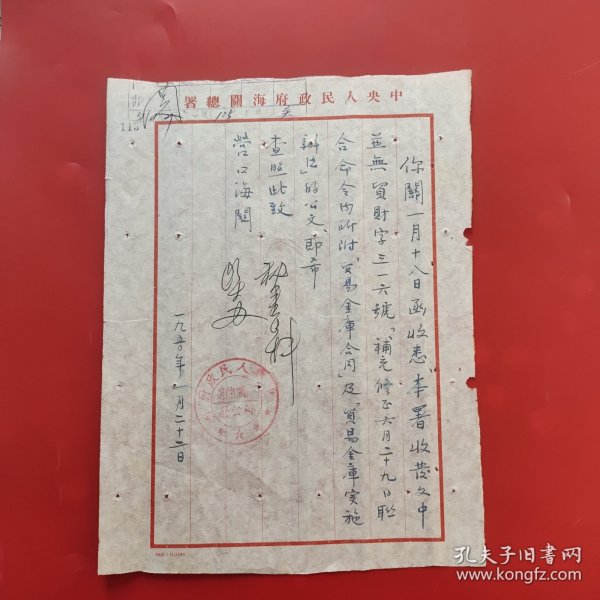 中央人民政府海關總署
你關一月十八日函收悉，本署收發文中
並無貿財字三一六號「補充修正六月二十九日聯
合命令內所附『貿易金庫合同』及『貿易金庫實施
辦法』的公文，即希
查照此致
營口海關
一九五〇年一月二十二日
孔夫子旧书网
www.kongfz.com